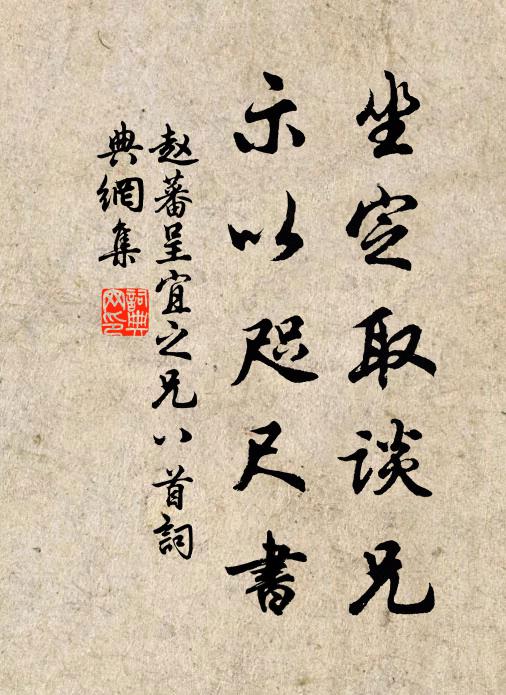 坐定取談兄
示以咫尺書
赵蕃呈宜之兄八首詞
典網集
詞典
网印